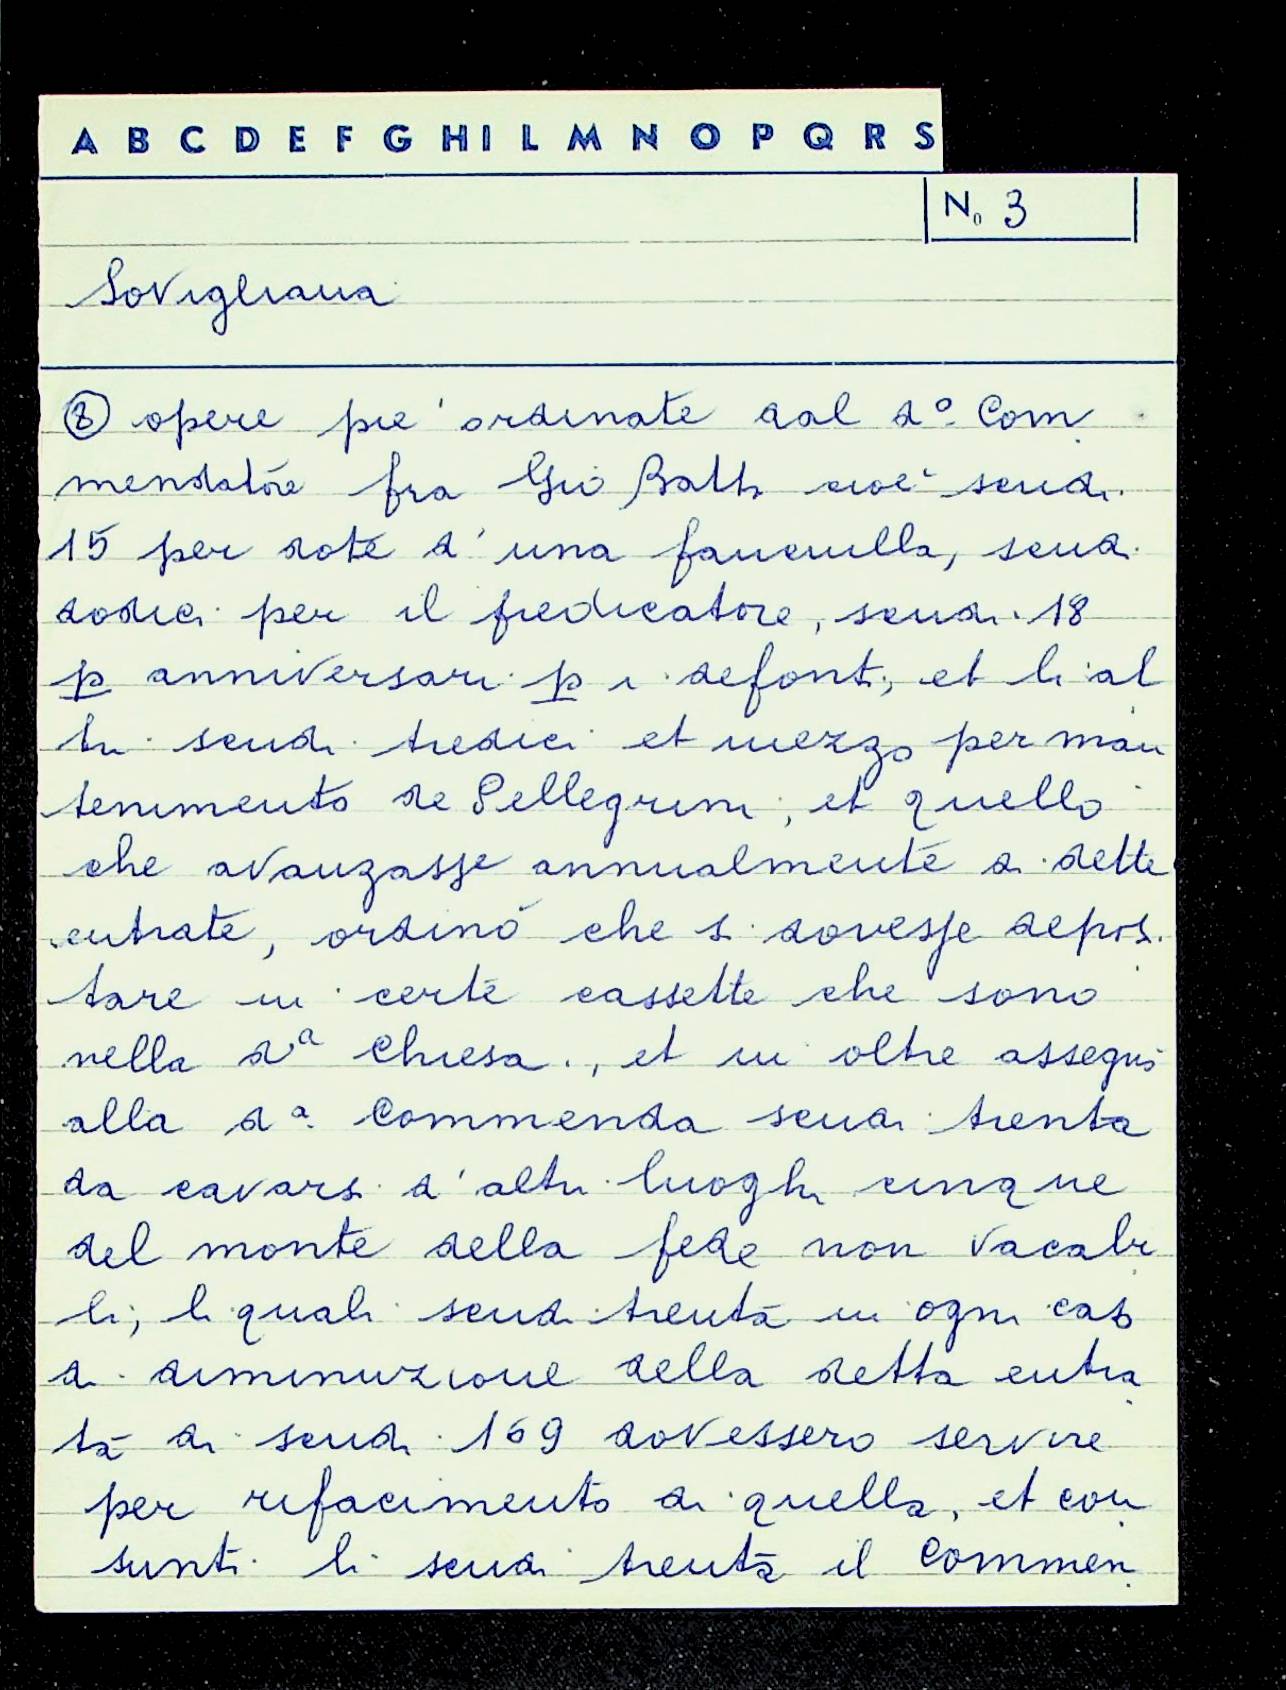 A B C D E F G H I L M N O P Q R S
No 3
Sovigliana
② opere pie ordinate dal d.º Com
mendatore fra Gio Batta cioè scudi
15 per dote d'una fanciulla, scudi
dodici per il predicatore, scudi 18
p anniversari p i defonti, et li al
tri scudi tredici et mezzo per man
tenimento de Pellegrini, et quello
che avanzasse annualmente di dette
entrate, ordinò che si dovesse deposi
tare in certe cassette che sono
nella d.ª Chiesa, et in oltre assegnò
alla d.ª Commenda scudi trenta
da cavarsi d'altri luoghi cinque
del monte della fede non vacabi
li, li quali scudi trenta in ogni caso
di diminuzione della detta entra
ta di scudi 169 dovessero servire
per rifacimento di quella, et con
sunti li scudi trenta il Commen